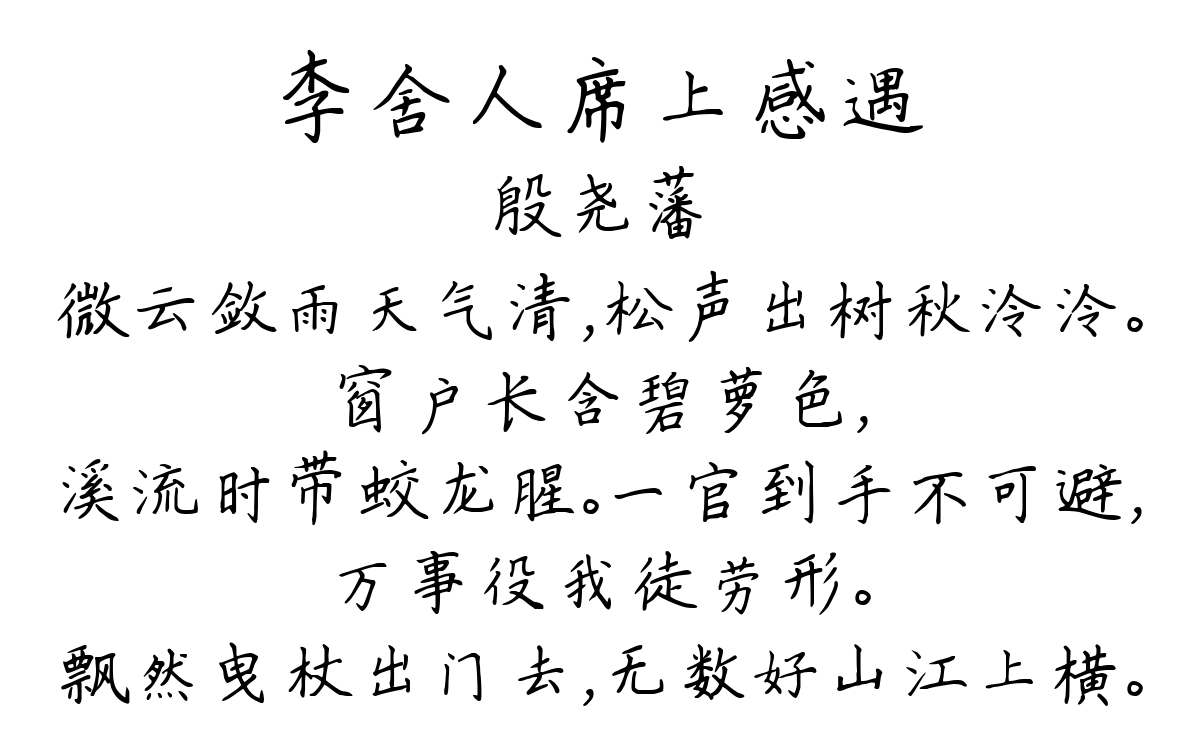 李舍人席上感遇
殷尧藩
微云敛雨天气清,松声出树秋泠泠。
窗户长含碧萝色,
溪流时带蛟龙腥。一官到手不可避,
万事役我徒劳形。
飘然曳杖出门去,无数好山江上横。